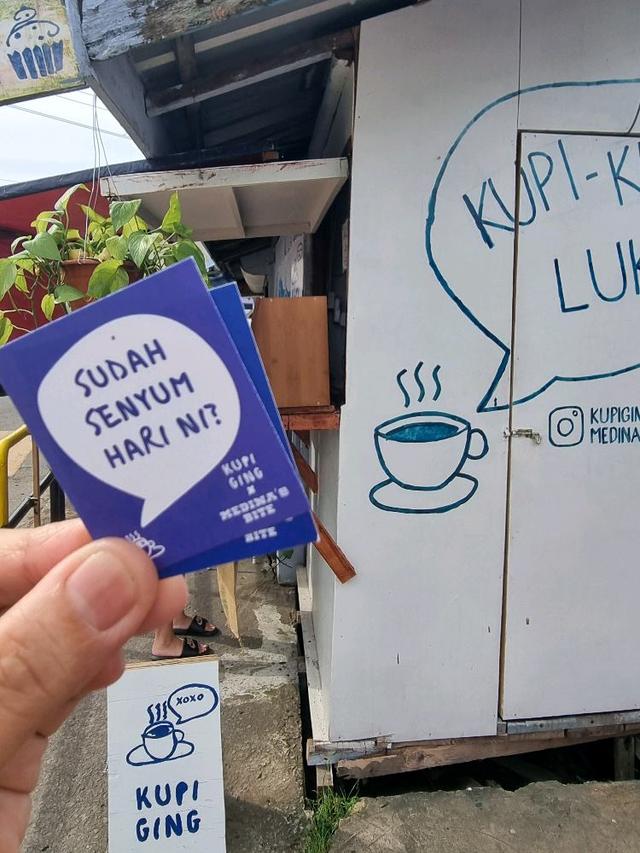 KUPI-K
LUK
KUPIGIN
MEDINA
SUDAH
SENYUM
HARI NI?
KUPI
GING
X
MEDINA'S
BITE
BITE
XOXO
KUPI
GING